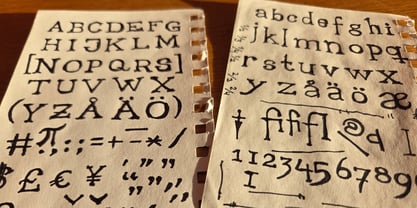 ABCDEFG
HIJKLM
[NOPQRS]
TUVWX
(YZÅÄÖ)
#¶:;=+-*/
$£€¥
abcdefghi
jklmnopq
rstuvwx
yzåäöæ
†fifl
1123456789
1